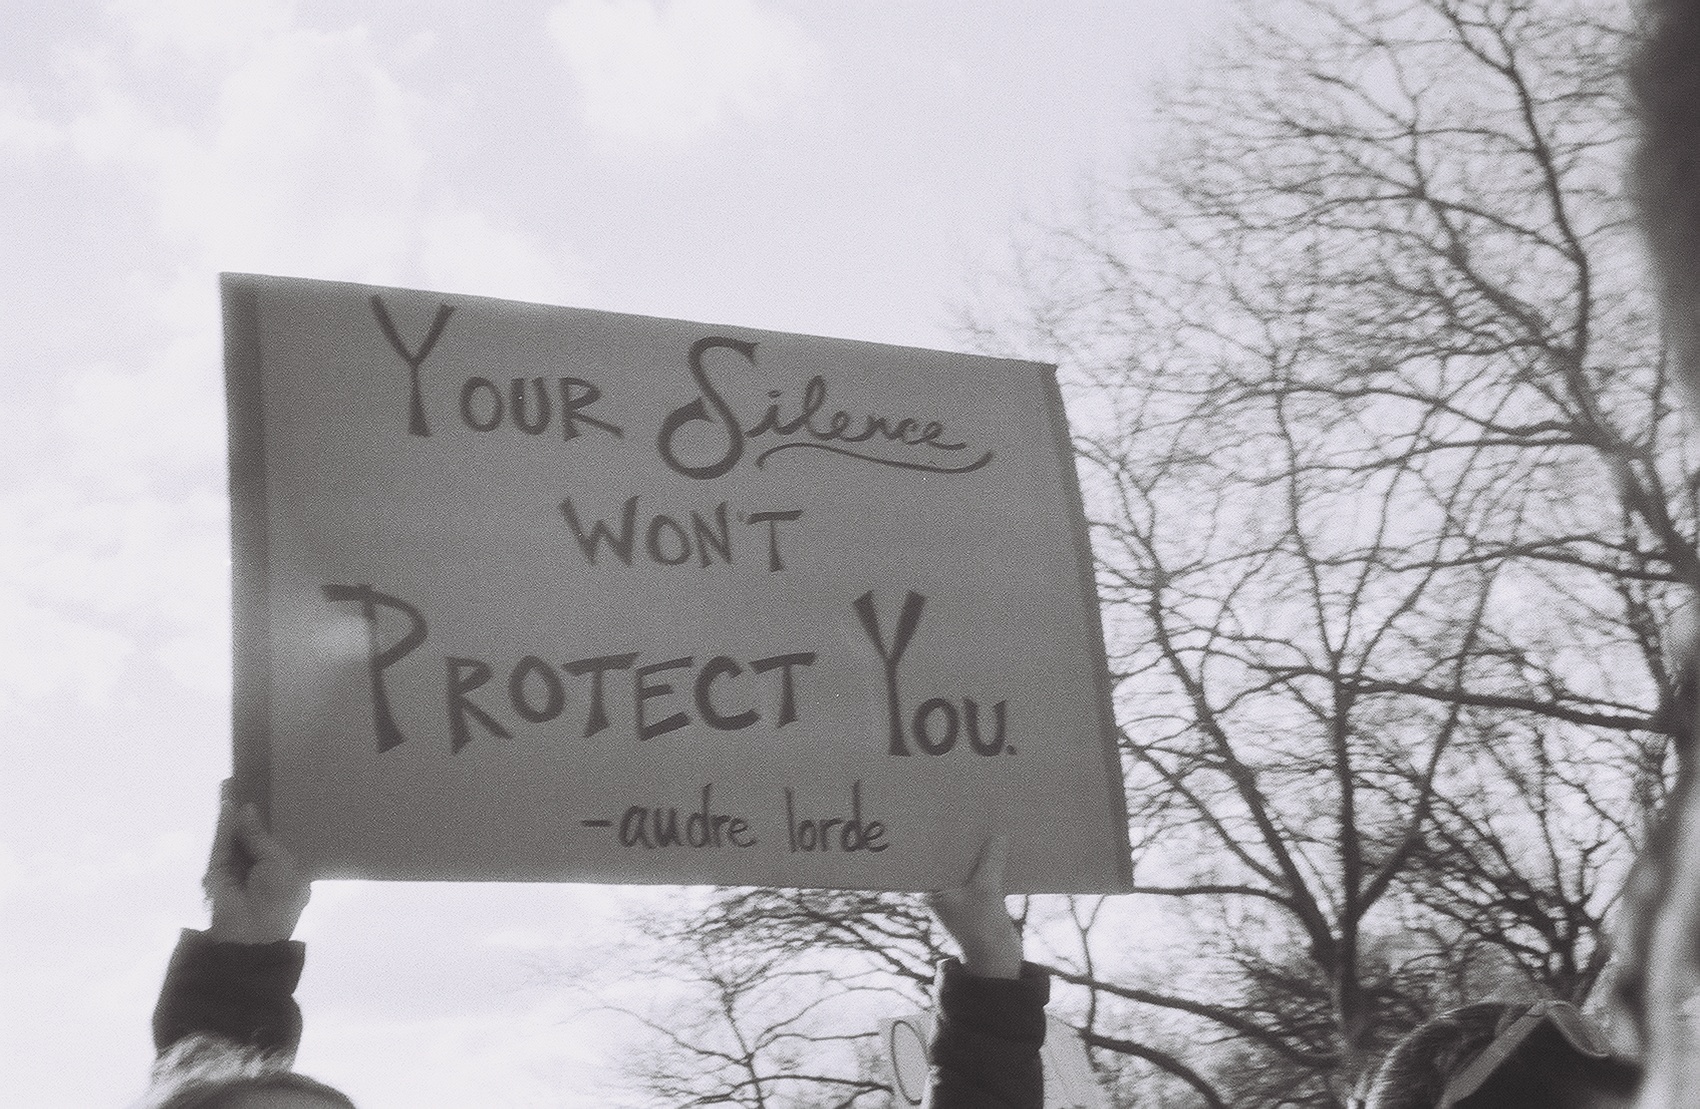 YOUR Silence
WON'T
PROTECT YOU.
-audre lorde